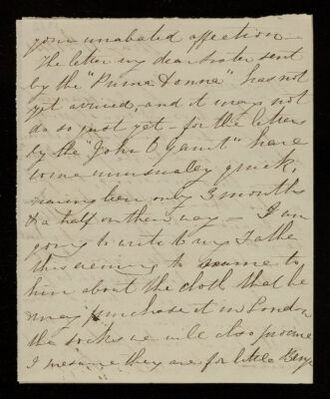 your unabated affection —
The letter my dear sister sent
by the "Prima Donna" has not
yet arrived, and it may not
do so just yet — for the letters
by the "John O Gaunt" have
come unusually quick,
having been only 3 months
& a half on their way — I am
going to write to my Father
this evening to name to
him about the cloth that he
may purchase it in London
the socks we will also procure
I presume they are for little